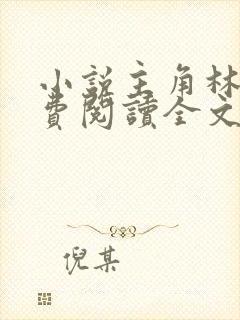 小説主角林
費閱讀全文
倪某